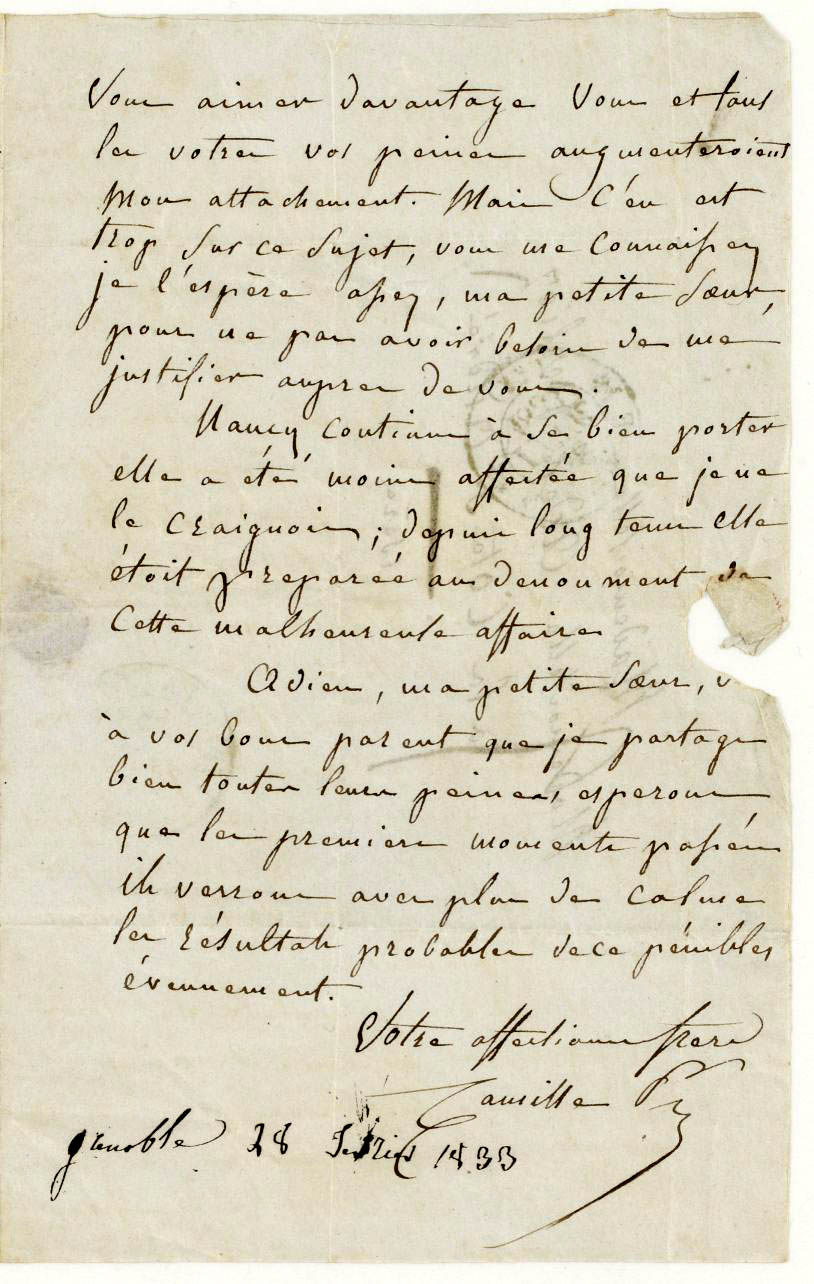 Vous aimer davantage vous et tous
les votres vos peines augmenteroient
mon attachement. Mais c'en est
trop sur ce sujet, vous me connaissez
je l'espère assez, ma petite Sœur,
pour ne pas avoir besoin de me
justifier aupres de vous.
Nancy continue à se bien porter
elle a été moins affectée que je ne
le craignois ; depuis long tems elle
étoit preparée au denoument de
Cette malheureuse affaire
Adieu, ma petite Sœur,
à vos bons parent que je partage
bien toutes leurs peines, esperons
que les premiers moments passés
ils verrons avec plus de calme
les résultats probables de ce pénibles
évennement.
Votre affectionné frere
Camille
grenoble 28 fevrier 1833